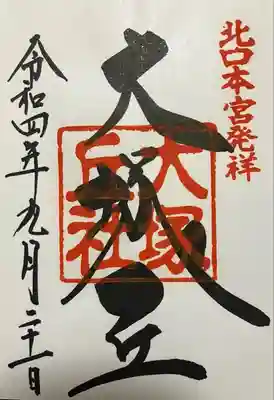 北口本宮発祥
大塚丘
大塚
丘社
令和四年九月二十一日